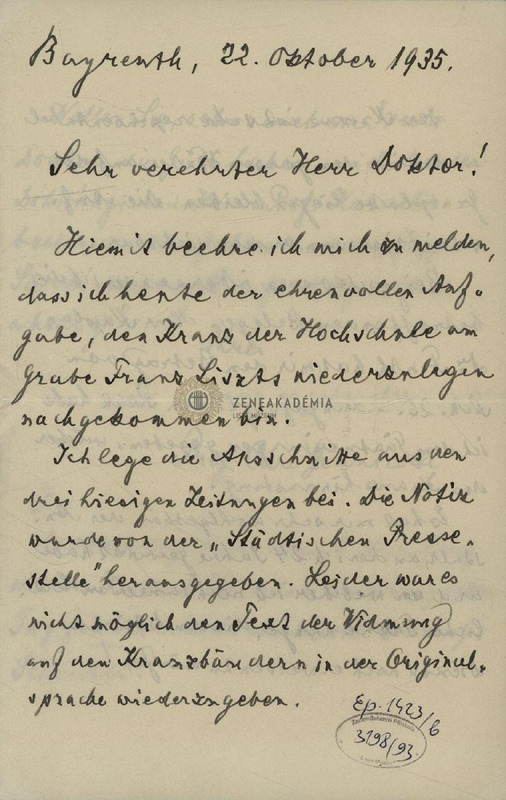 Bayreuth, 22. Oktober 1935.
Sehr verehrter Herr Doktor!
Hiemit beehre ich mich zu melden,
dass ich heute der ehrenvollen Auf-
gabe, den Kranz der Hochschule am
Grabe Franz Liszts niederzulegen
nachgekommen bin.
Ich lege die Ausschnitte aus den
drei hiesigen Zeitungen bei. Die Notiz
wurde von der „Städtischen Presse-
stelle" herausgegeben. Leider war es
nicht möglich den Text der Vidmung
auf den Kranzbändern in der Original-
sprache wiederzugeben.
ZENEAKADÉMIA
LISZT MÚZEUM
Ep. 1423/6
3198/93